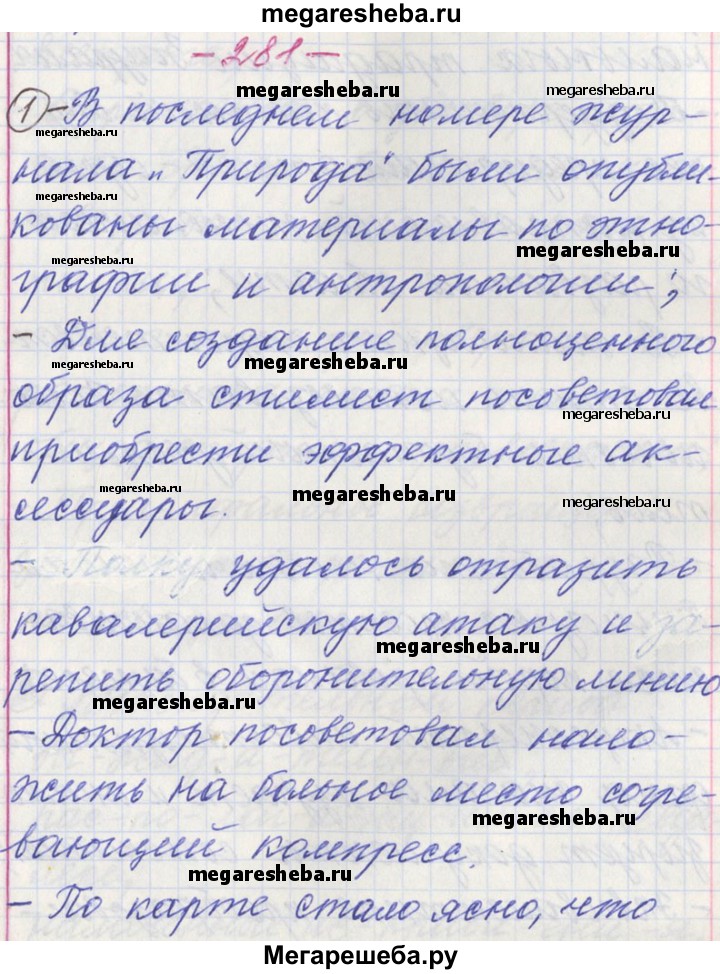 megaresheba.ru
- 281 -
① - В последнем номере жур-
megaresheba.ru
megaresheba.ru
нала „Природа" были опубли-
megaresheba.ru
кованы материалы по этно-
megaresheba.ru
megaresheba.ru
графии и антропологии;
- Для создание полноценного
megaresheba.ru
megaresheba.ru
образа стилист посоветовал
megaresheba.ru
приобрести эффектные ак-
megaresheba.ru
megaresheba.ru
megaresheba.ru
сессуары.
- Полку удалось отразить
кавалерийскую атаку и за-
megaresheba.ru
репить оборонительную линию
megaresheba.ru
- Доктор посоветовал нало-
жить на больное место согре-
megaresheba.ru
вающий компресс.
megaresheba.ru
- По карте стало ясно, что
Мегарешеба.ру